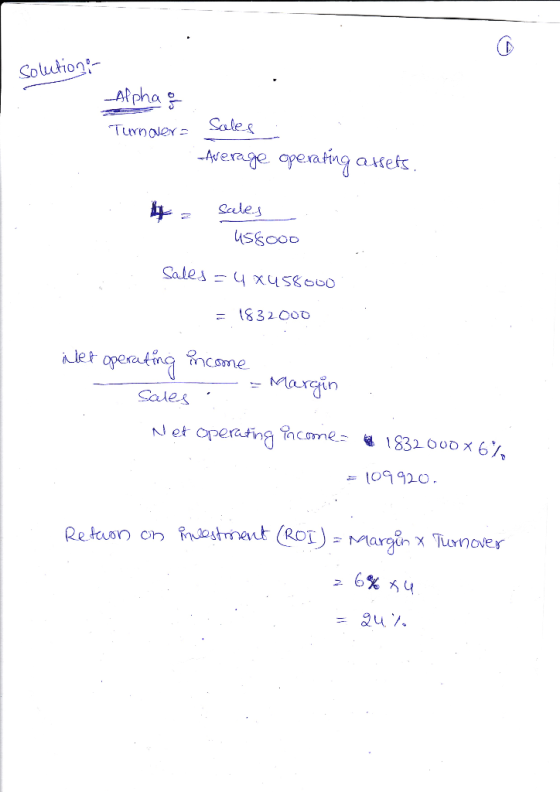 ①
Solution:-
Alpha :-
Turnover = Sales / Average operating assets.
4 = Sales / 458000
Sales = 4 × 458000
= 1832000
Net operating income / Sales = Margin
Net operating income = 1832000 × 6%
= 109920.
Return on investment (ROI) = Margin × Turnover
= 6% × 4
= 24%